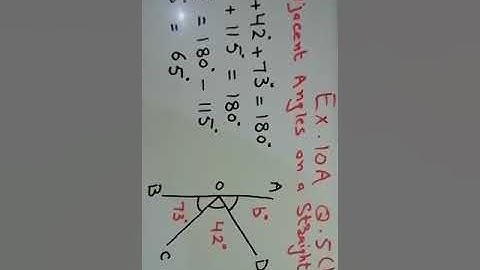 Ex. 10A Q.5(
djacent Angles on a Straight
+ 42° + 73° = 180°
+ 115° = 180°
= 180° - 115°
= 65°
A
O
B
C
D
b°
42°
73°